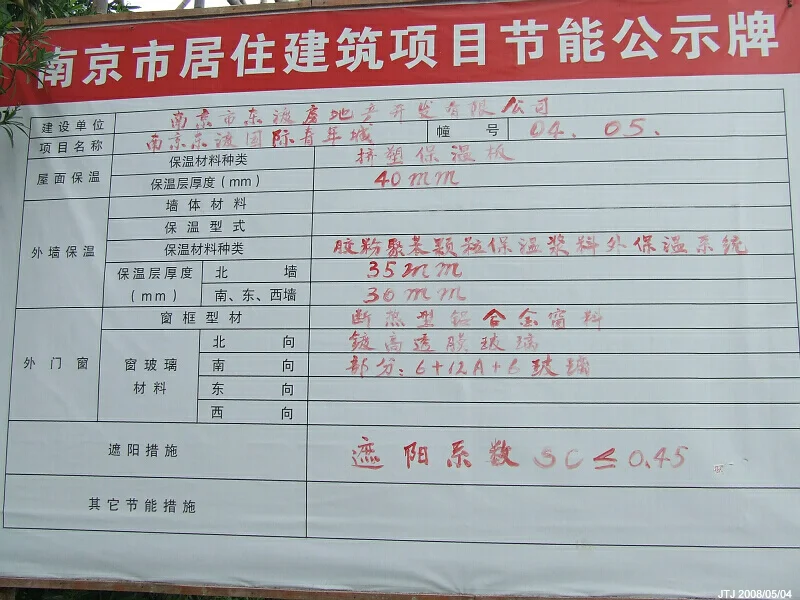 南京市居住建筑项目节能公示牌
建设单位 南京市东渡房地产开发有限公司
项目名称 南京东渡国际青年城 幢号 04. 05.
屋面保温 保温材料种类 挤塑保温板
保温层厚度(mm) 40mm
外墙保温 墙体材料
保温型式
保温材料种类 胶粉聚苯颗粒保温浆料外保温系统
保温层厚度(mm) 北墙 35mm
南、东、西墙 30mm
外门窗 窗框型材 断热型铝合金窗料
窗玻璃材料 北向 镀高透膜玻璃
南向 部分:6+12A+6玻璃
东向
西向
遮阳措施 遮阳系数 SC≤0.45
其它节能措施
JTJ 2008/05/04